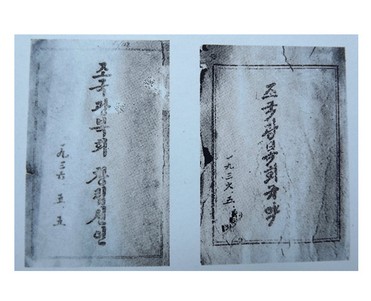 조국광복회 창립선언
一九三六 五、五
조국광복회규약
一九三六、五、